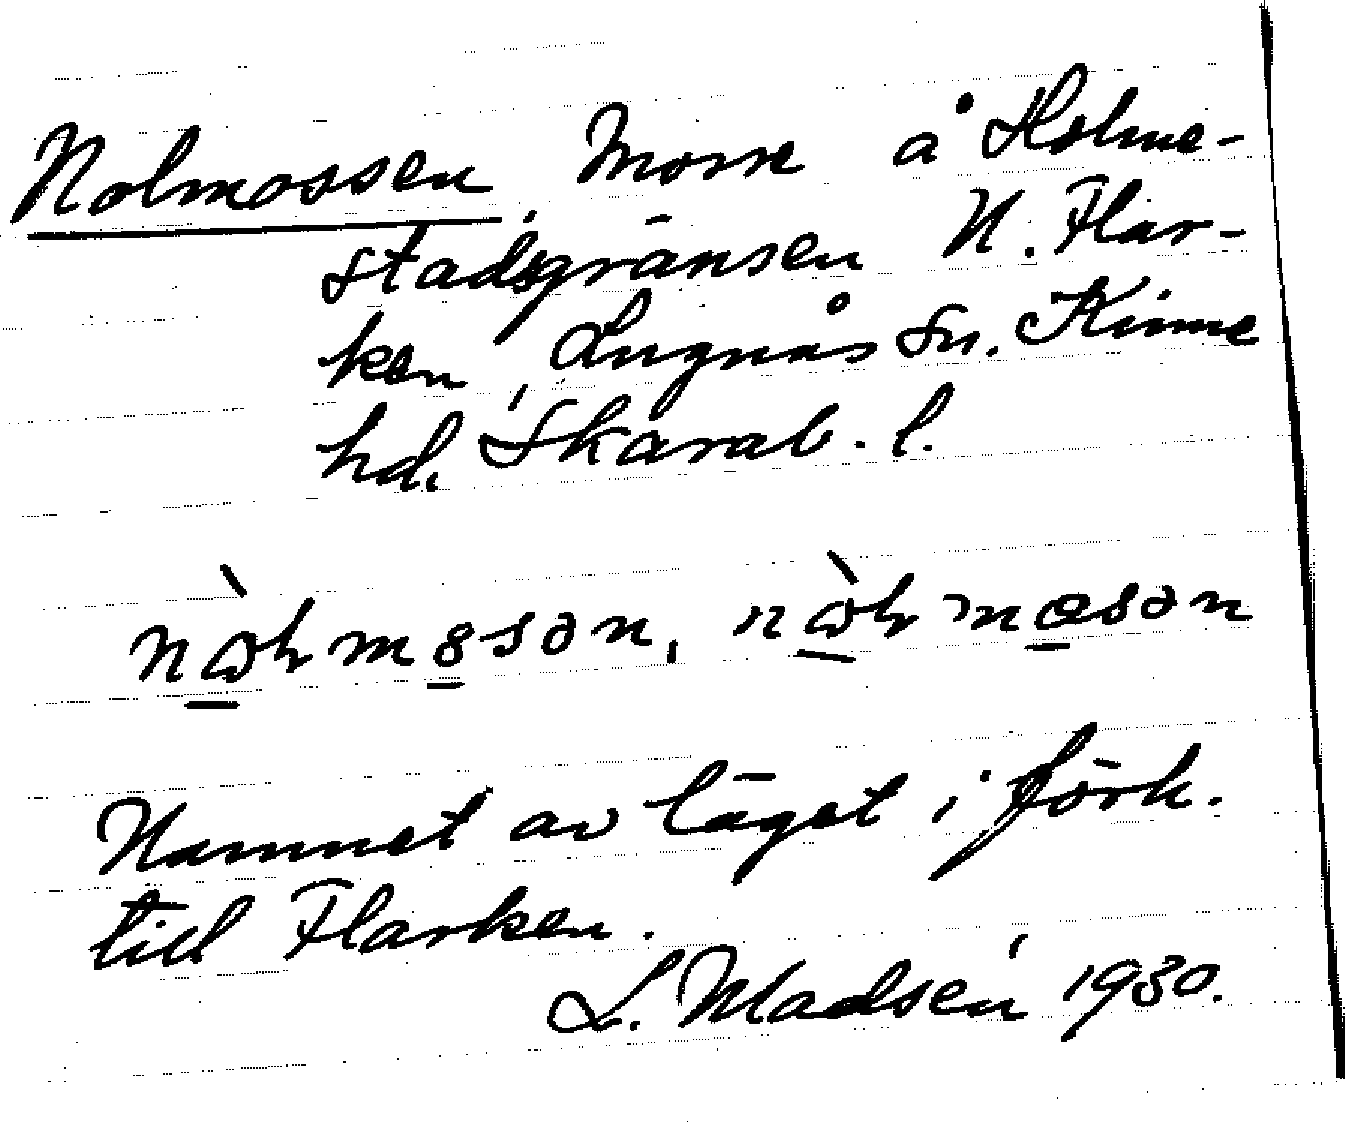 Nolmossen, Mosse å Holme-
stadsgränsen N. Flar-
ken, Lugnås sn. Kinne
hd. Skarab. l.
nòɷhmɵsən, nòɷhmɵsən
Namnet av läget i förh.
till Flarken.
L. Madsén 1930.